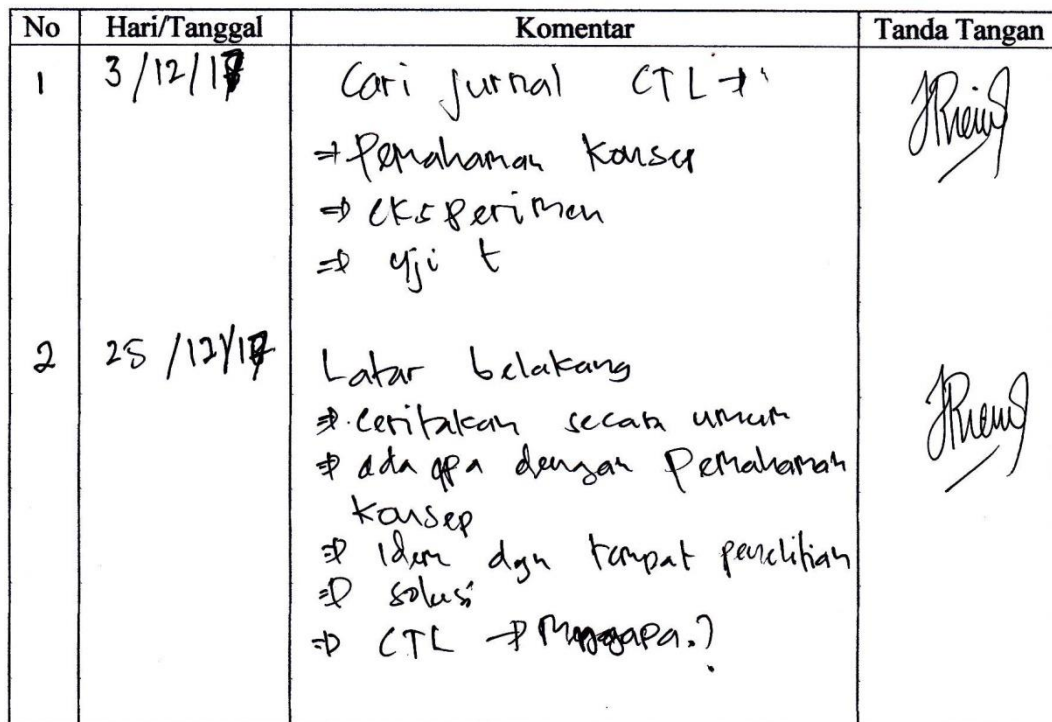 No Hari/Tanggal Komentar Tanda Tangan
1 3/12/17 Cari Jurnal CTL →
⇒ Pemahaman Konsep
⇒ eksperimen
⇒ uji t
2 25/12/17 Latar belakang
⇒ ceritakan secara umum
⇒ ada apa dengan Pemahaman
Konsep
⇒ Idem dgn tempat penelitian
⇒ solusi
⇒ CTL → Mengapa.?